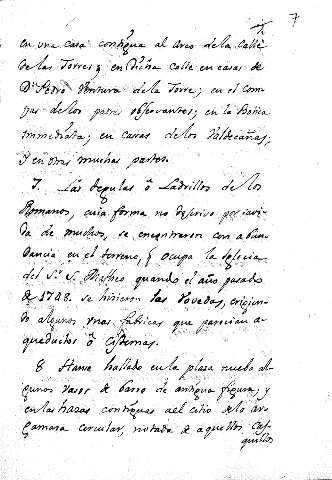 7
en una casa contigua al Arco de la Calle
de las Torres; en dicha calle en casas de
Dn Pedro Ventura de la Torre; en el com
pas de los padres observantes; en la Botica
immediata; en casas de los Valdecañas,
y en otras muchas partes.
7. Las tegulas ô Ladrillos de los
Romanos, cuia forma no describo por savi
da de muchos, se encontraron con abun
dancia en el terreno, q ocupa la Iglecia
del Sr. S. Matheo quando el año pasado
de 1748. se hicieron las vovedas, erigien
do algunos unas fabricas que parecian a
queductos ô Cisternas.
8 Hanse hallado en la plaza nueba al
gunos vasos de barro de antigua figura, y
en las hazas contiguas a el citio de lo ar
gamara circular, notada de aquellos cas
quillos